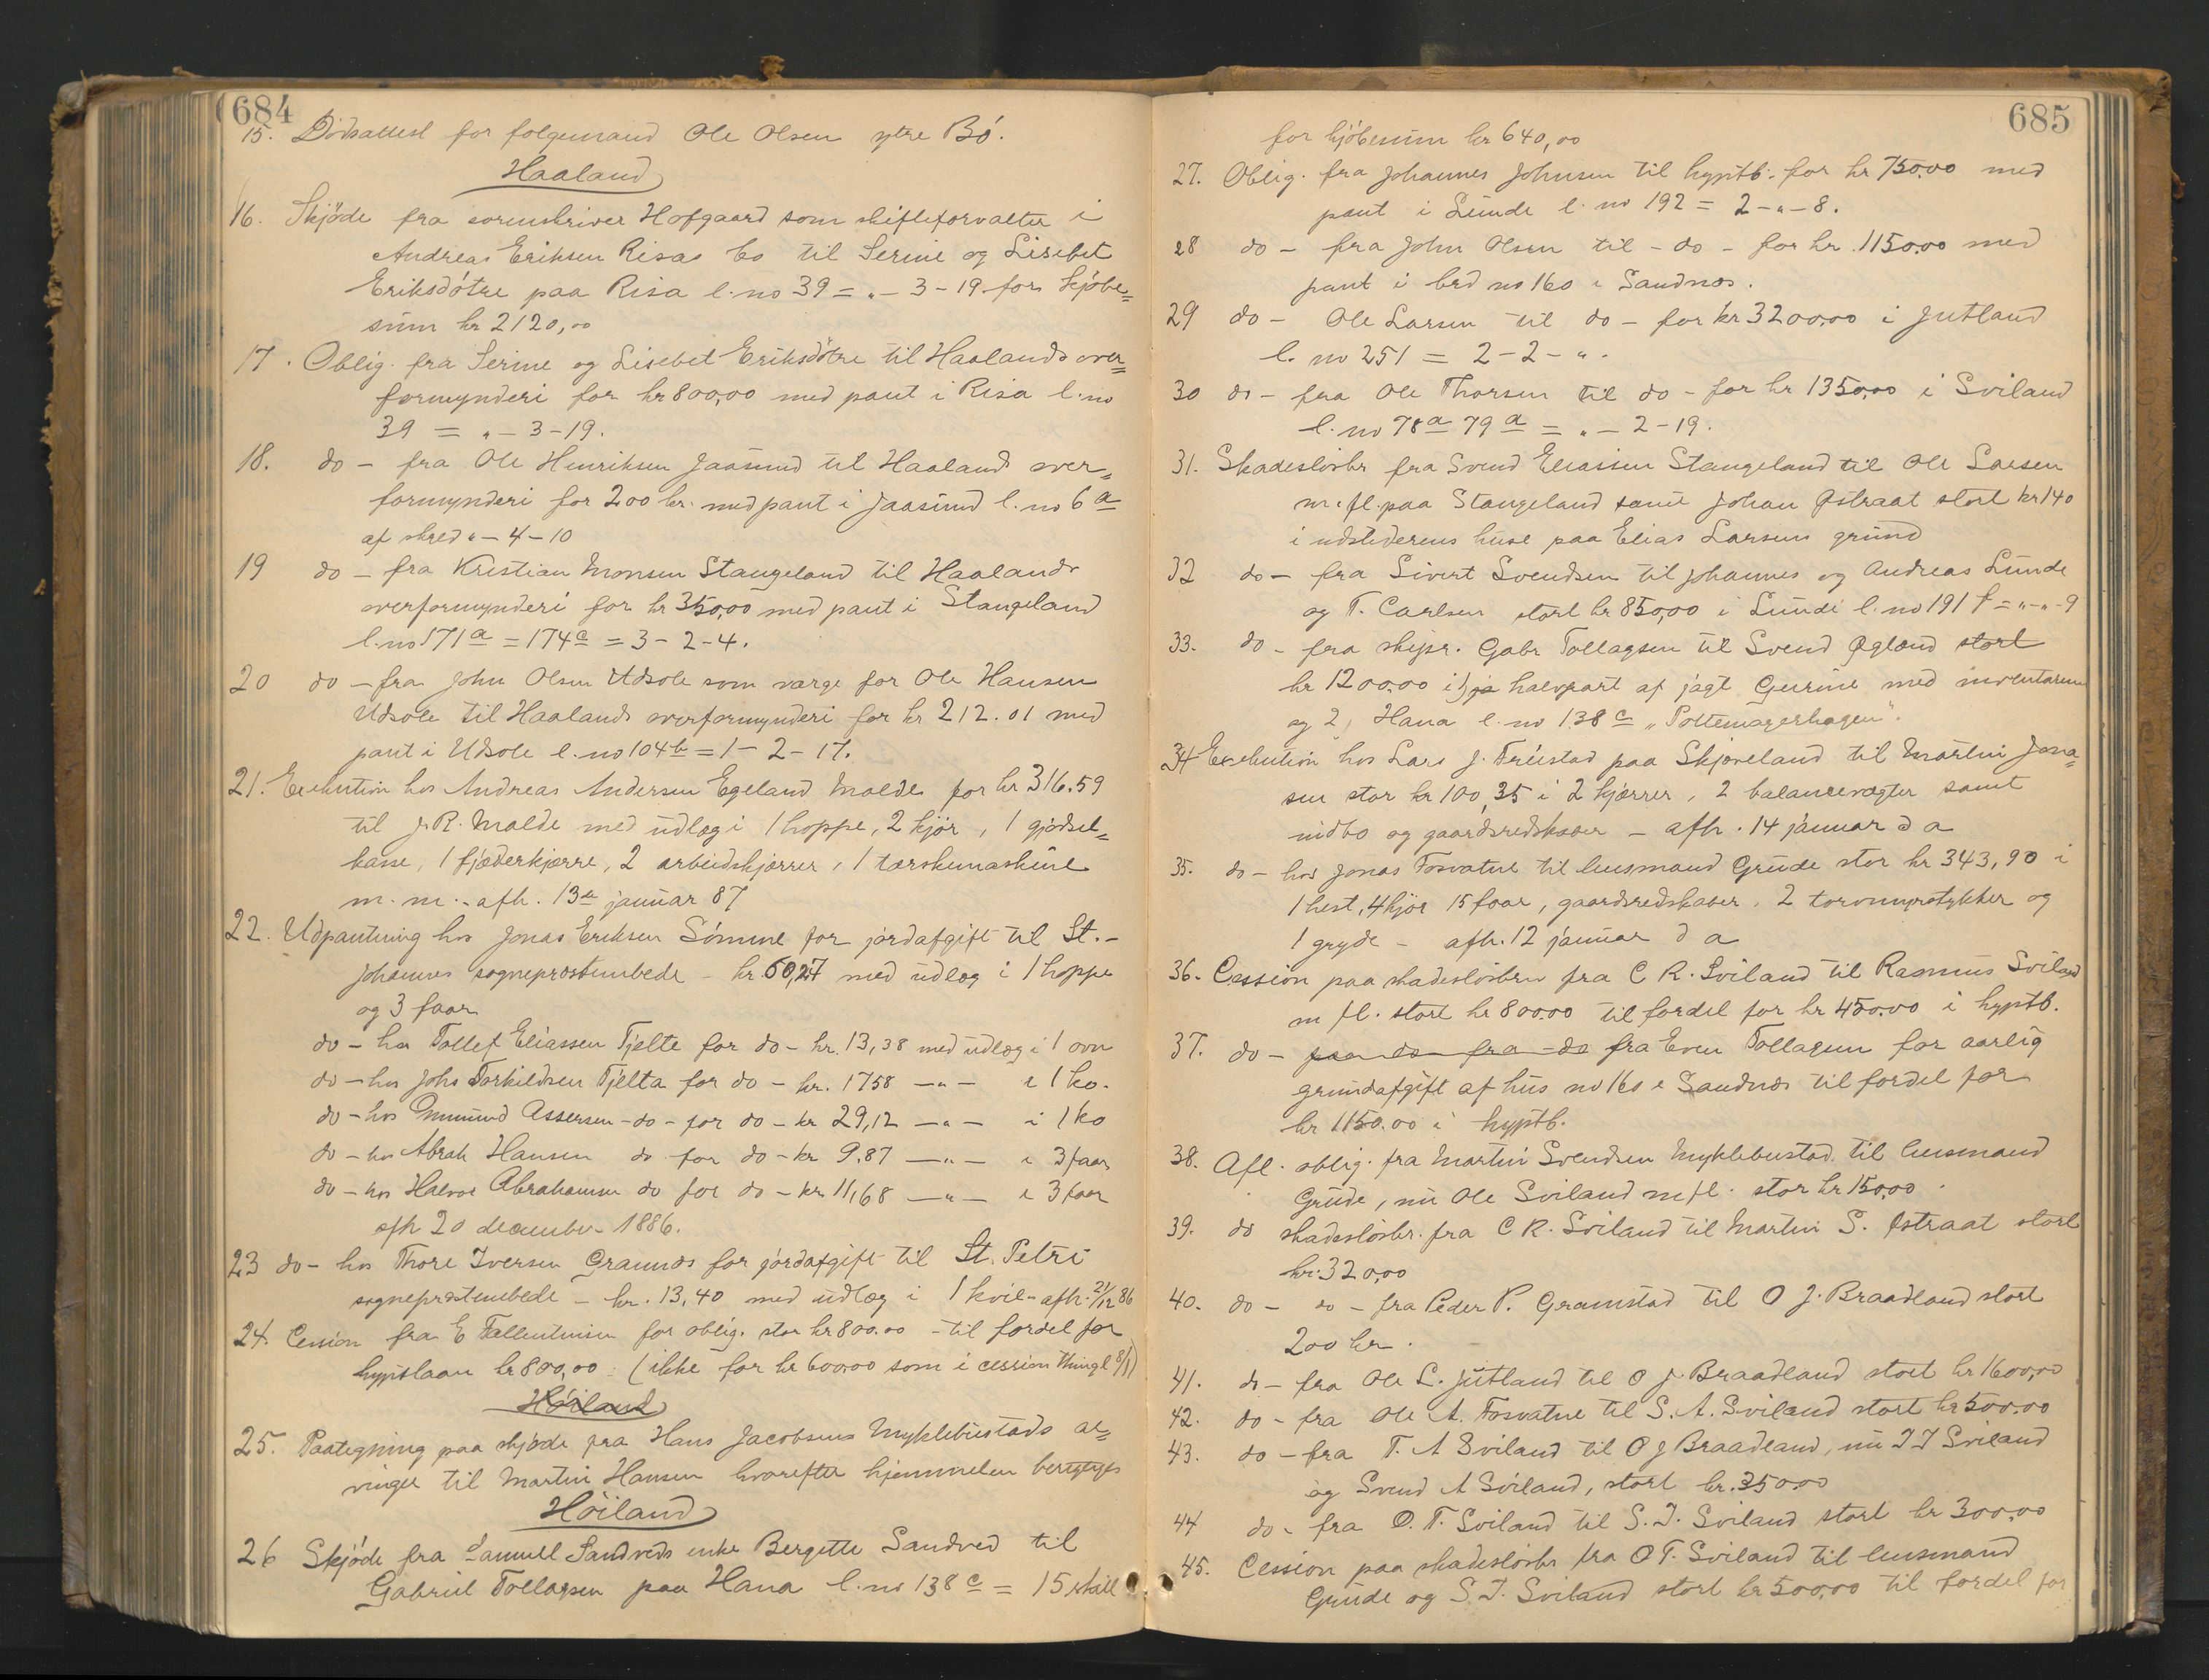 684
15. Dödsattest for følgemand Ole Olsen ytre Bö.
Haaland
16. Skjöde fra sorenskriver Hofgaard som skifteforvalter i
Andreas Eriksen Risas bo til Serine og Lisebet
Eriksdötre paa Risa l. no 39 = „ - 3 - 19 for kjöbe=
sum kr 2120,00
17. Oblig. fra Serine og Lisebet Eriksdötre til Haalands over=
formynderi for kr 800,00 med pant i Risa l. no
39 = „ - 3 - 19.
18. do - fra Ole Henriksen Jaasund til Haalands over=
formynderi for 200 kr. med pant i Jaasund l. no 6 a
af skyld „ - 4 - 10
19 do - fra Kristian Monsen Stangeland til Haalands
overformynderi for kr 350,00 med pant i Stangeland
l. no 171 a = 174 c = 3 - 2 - 4.
20 do - fra John Olsen Udsole som værge for Ole Hansen
Udsole til Haalands overformynderi for kr 212.01 med
pant i Udsole l. no 104 b = 1 - 2 - 17.
21. Exekution hos Andreas Andersen Egeland Malde for kr 316.59
til J. R. Malde med udlæg i 1 hoppe, 2 kjör, 1 gjödsel=
kasse, 1 fjæderkjærre, 2 arbeidskjærrer, 1 tærskemaskine
m. m. - afh. 13de januar 87
22. Udpantning hos Jonas Eriksen Sömme for jordafgift til St. -
Johannes sogneprestembede - kr. 60,27 med udlæg i 1 hoppe
og 3 faar
do - hos Tollef Eliassen Tjelte for do - kr. 13,38 med udlæg i 1 ovn
do - hos Johs Torkildsen Tjelta for do - kr. 17 58 — „ — i 1 ko.
do - hos Gunmund Assersen - do - for do - kr 29,12 — „ — i 1 ko
do - hos Abrah Hansen do for do - kr 9.87 — „ — i 3 faar
do - hos Halvor Abrahamsen do for do - kr 11,68 — „ — i 3 faar
afh 20 december 1886.
23 do - hos Thore Iversen Grannes for jordafgift til St. Petri
sogneprestembede - kr. 13,40 med udlæg i 1 kvie - afh. 21/12 86
24. Cession fra E Fallentinsen for oblig. stor kr 800.00 - til fordel for
hypslaan kr 800,00. (ikke for kr 600,00 som i cession thingl 8/1)
Höiland
25. Paategning paa skjöde fra Hans Jacobsens Myklebustads ar=
vinger til Martin Hansen hvorefter hjemmelen berigtiges
Höiland
26 Skjöde fra Samuel Sandveds enke Bergitte Sandved til
Gabriel Tollagsen paa Hana l. no 138 c = 15 skill
685
for kjöbesum kr 640,00
27. Oblig. fra Johannes Johnsen til hyptb. for kr 750.00 med
pant i Lunde l. no 192 = 2 - „ - 8.
28 do - fra John Olsen til - do - for kr 1150.00 med
pant i brd no 160 i Sandnæs.
29 do - Ole Larsen til do - for kr 3200,00 i Jutland
l. no 251 = 2 - 2 - „.
30 do - fra Ole Thorsen til do - for kr 1350,00 i Sviland
l. no 78 a 79 a = „ - 2 - 19.
31. Skadeslösbr fra Svend Eliassen Stangeland til Ole Larsen
m. fl. paa Stangeland samt Johan Østraat stort kr 140
i udstederens huse paa Elias Larsens grund
32 do - fra Sivert Svendsen til Johannes og Andreas Lunde
og T. Carlsen stort kr 850,00 i Lunde l. no 191 f = „ - „ - 9
33. do - fra skipr. Gabr Tollagsen til Svend Øgland stort
kr 1200.00 i 1) halvpart af jagt Gurine med inventarium
og 2, Hana l. no 138 c „Pottemagerhagen".
34 Exekution hos Lars J. Frøistad paa Skjæveland til Martin Jona=
sen stor kr 100,35 i 2 kjærrer, 2 balancevægter samt
indbo og gaardsredskaber - afh. 14 januar d a
35. do - hos Jonas Fosvatne til lensmand Grude stor kr 343,90 i
1 hest, 4 kjör 15 faar, gaardsredskaber, 2 torvmyrstykker og
1 gryde - afh. 12 januar d a
36. Cession paa skadeslösbrev fra C R. Sviland til Rasmus Sviland
m fl. stort kr 800.00 til fordel for kr 450.00 i hyptb.
37. do - paa do fra do fra Even Tollagsen for aarlig
grundafgift af hus no 160 i Sandnæs til fordel for
kr 1150.00 i hyptb.
38. Afl. oblig. fra Martin Svendsen Myklebustad til lensmand
Grude, nu Ole Sviland m fl. stor kr 150,00.
39. do skadeslösbr. fra C R. Sviland til Martin S. Østraat stort
kr. 320,00
40. do - do - fra Peder P. Gramstad til O J. Braadland stort
200 kr.
41. do - fra Ole L. Jutland til O J. Braadland stort kr 1600,00
42. do - fra Ole A. Fosvatne til S. A. Sviland stort kr 500.00
43. do - fra T. A Sviland til O J Braadland, nu I I Sviland
og Svend A Sviland, stort kr. 350.00
44 do - fra O. T. Sviland til S. I. Sviland stort kr 300,00
45. Cession paa skadeslösbr fra O T. Sviland til lensmand
Grude og S. I. Sviland stort kr 500,00 til fordel for